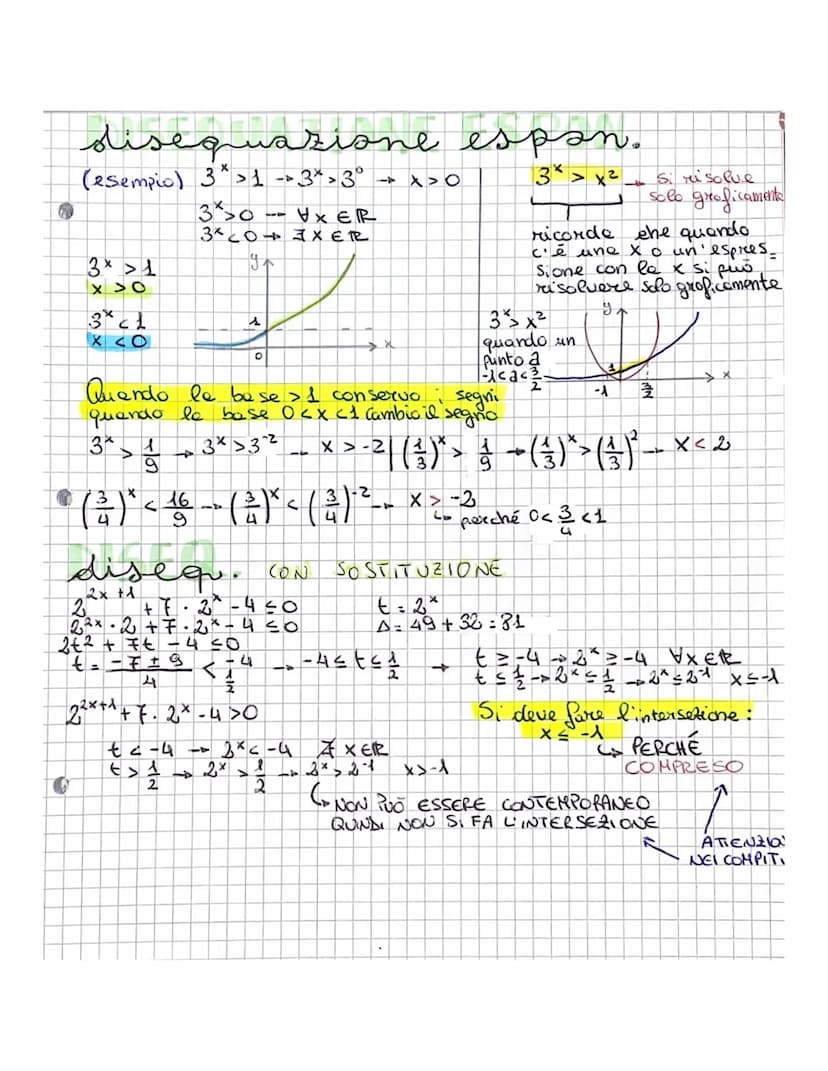 DISEQUAZIONE ESPON.
disequazione espon.
(esempio) 3ˣ > 1 → 3ˣ > 3⁰ → x > 0
3ˣ > 0 → ∀ x ∈ ℝ
3ˣ < 0 → ∄ x ∈ ℝ
3ˣ > 1
x > 0
3ˣ < 1
x < 0
y
1
0
x
3ˣ > x² → si risolve
solo graficamente
ricorda che quando
c'è una x o un'espres_
sione con la x si può
risolvere solo graficamente
3ˣ > x²
quando un
punto a
-1 < a < 3/2
y
1
-1
3/2
x
Quando la base > 1 conservo i segni
quando la base 0 < x < 1 cambio il segno
3ˣ > 1/9 → 3ˣ > 3⁻² → x > -2 | (1/3)ˣ > 1/9 → (1/3)ˣ > (1/3)² → x < 2
(3/4)ˣ < 16/9 → (3/4)ˣ < (3/4)⁻² → x > -2
↳ perché 0 < 3/4 < 1
DISEQ
diseq. CON SOSTITUZIONE
2²ˣ⁺¹ + 7 · 2ˣ - 4 ≤ 0 t = 2ˣ
2²ˣ · 2 + 7 · 2ˣ - 4 ≤ 0 Δ = 49 + 32 = 81
2t² + 7t - 4 ≤ 0
t = (-7 ± 9)/4 < -4 1/2 → -4 ≤ t ≤ 1/2 → t ≥ -4 → 2ˣ ≥ -4 ∀ x ∈ ℝ
t ≤ 1/2 → 2ˣ ≤ 1/2 → 2ˣ ≤ 2⁻¹ x ≤ -1
2²ˣ⁺¹ + 7 · 2ˣ - 4 > 0
Si deve fare l'intersezione:
x ≤ -1
↳ PERCHÉ
COMPRESO
t < -4 → 2ˣ < -4 ∄ x ∈ ℝ
t > 1/2 → 2ˣ > 1/2 → 2ˣ > 2⁻¹ x > -1
↳ NON PUÒ ESSERE CONTEMPORANEO
QUINDI NON SI FA L'INTERSEZIONE
ATTENZIO
NEI COMPITI